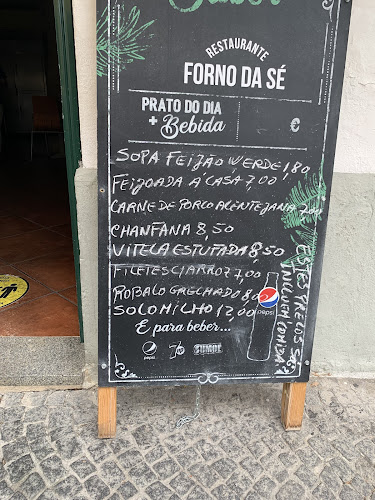 Sabor
RESTAURANTE
FORNO DA SÉ
PRATO DO DIA
+ Bebida
€
SOPA FEIJÃO VERDE 1,80
FEIJOADA A' CASA 7,00
CARNE DE PORCO ALENTEJANA 7,00
CHANFANA 8,50
VITELA ESTUFADA 8,50
FILETES C/ARROZ 7,00
ROBALO GRELHADO 8,00
SOLOMILHO 12,00
ESTES PREÇOS SÓ
INCLUEM COMIDA
E para beber...
pepsi
pepsi
7up
SUMOL